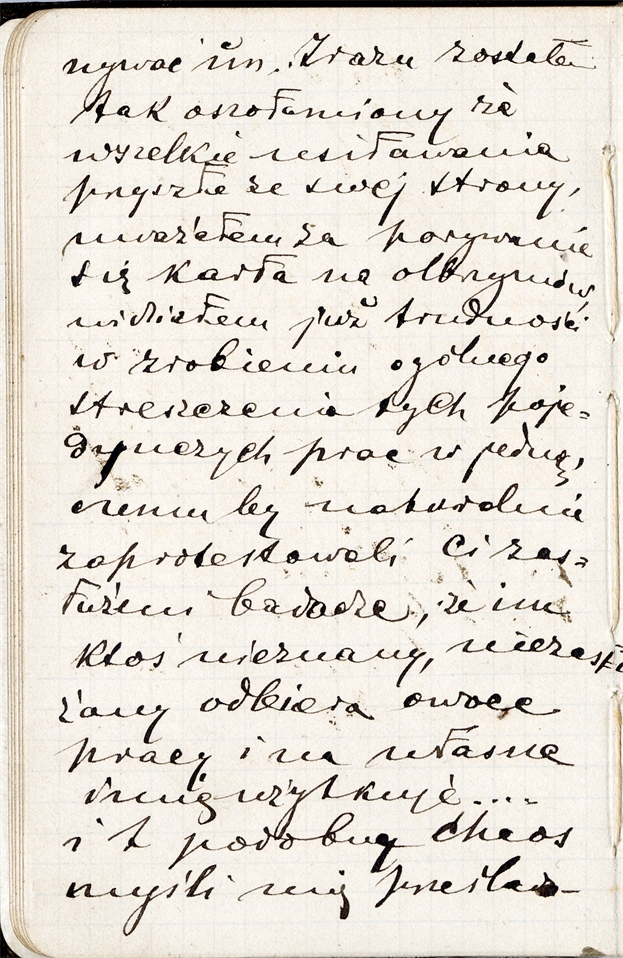 nywać im. Zrazu zostałem
tak oszołomiony że
wszelkie usiławania
pryszłe ze swéj strony,
uważałem za porywanie
się karła na olbrzymów,
widziałem już trudności
w zrobieniu ogólnego
streszczenia tych poje=
dynczych prac w jedną,
czemu by naturalnie
zaprotestowali Ci zas=
łużeni badacze, że im
ktoś nieznany, niezasłu
żany odbiera owoce
pracy i na własne
imię użytkuje....
i t podobny chaos
myśli mię prześlado-